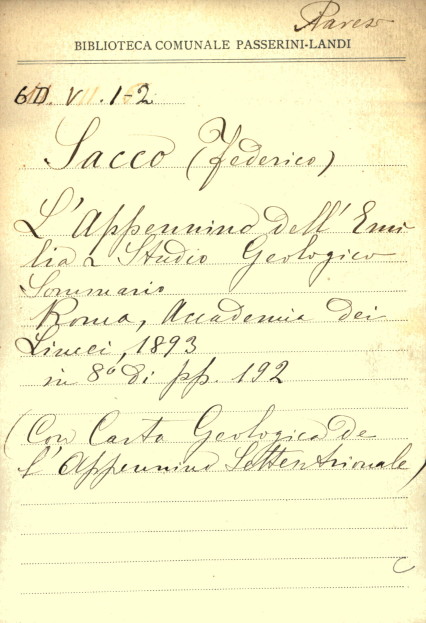 BIBLIOTECA COMUNALE PASSERINI-LANDI
6D. V .1-2
Sacco (Federico)
L'Appennino dell'Emi
lia Studio Geologico
Sommario
Roma, Accademia dei
Lincei, 1893
in 8° di pp. 192
(Con Carta Geologica de
l'Appennino Settentrionale)